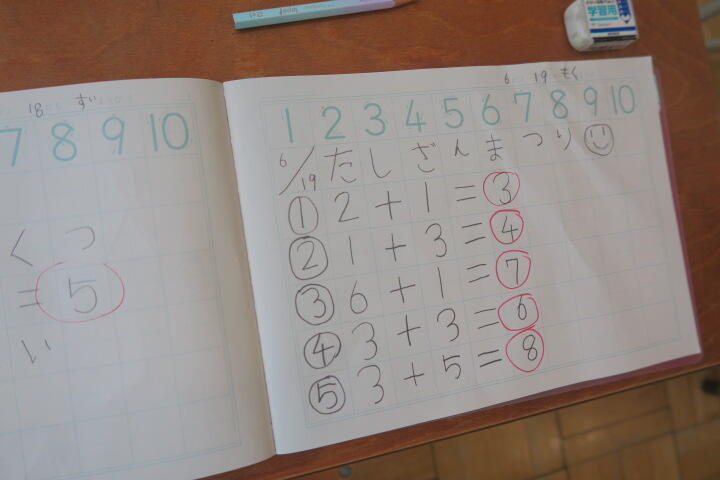 学習用
18 すい
7 8 9 10
くつ
= 5
い
6 19 もく
1 2 3 4 5 6 7 8 9 10
6/19 たしざんまつり
① 2 + 1 = 3
② 1 + 3 = 4
③ 6 + 1 = 7
④ 3 + 3 = 6
⑤ 3 + 5 = 8